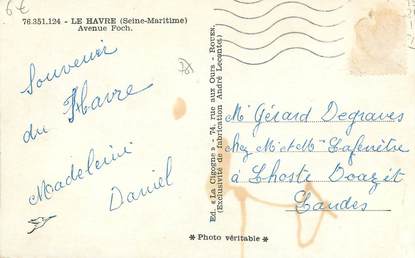 6€
76.351.124 - LE HAVRE (Seine-Maritime)
Avenue Foch.
Souvenir
du Havre
Madeleine
Daniel
Ed. «La Cigogne» - 74, rue aux Ours - ROUEN.
(Exclusivité de fabrication André Leconte)
Mr Gérard Degraves
chez Mr et Mme Lafenêtre
à Lhoste Doazit
Landes
* Photo véritable *